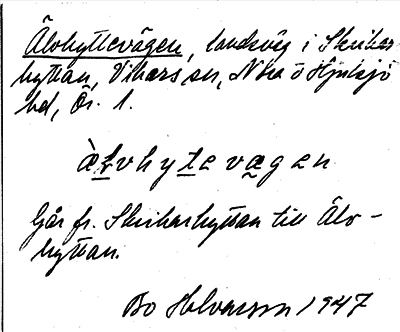 Älvhyttevägen, landsväg i Skrikar
hyttan, Vikers sn, Nora o Hjulsjö
bd, Ör. l.
àlvhytevægen
Går fr. Skrikarhyttan till Älv-
hyttan.
Bo Halvarson 1947